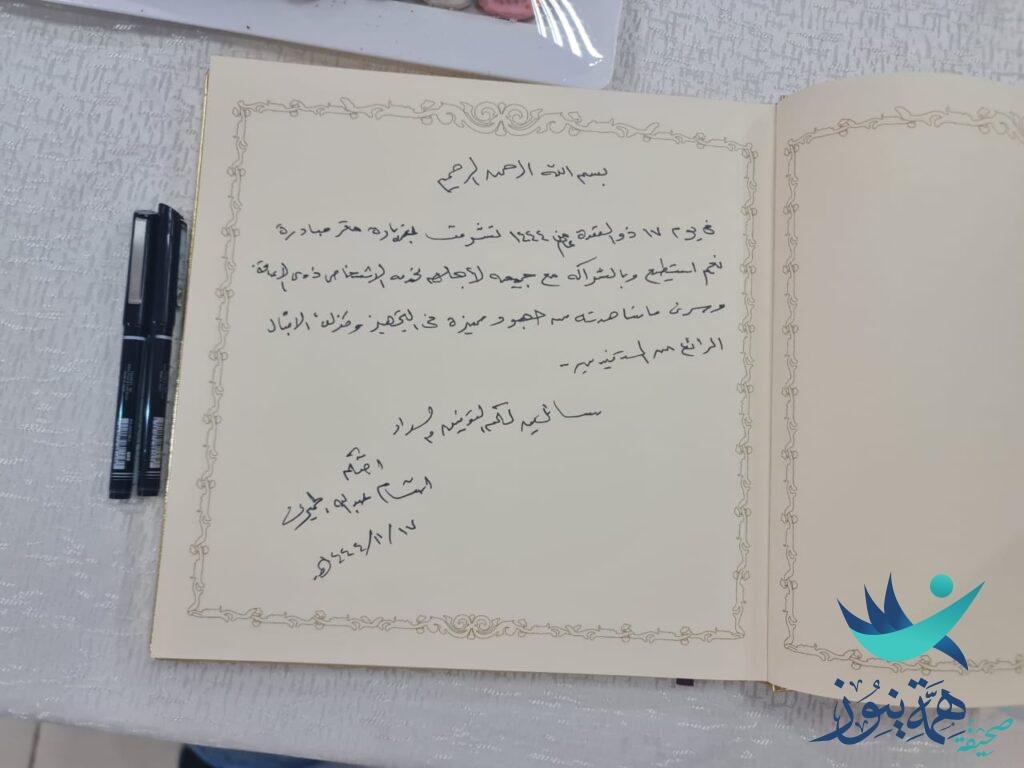 بسم الله الرحمن الرحيم
في يوم ١٧ ذو القعدة ١٤٤٤ تشرفت بزيارة مقر مبادرة
نعم استطيع وبالشراكة مع جمعية لأجلهم لخدمة الأشخاص ذوي الإعاقة
وسرني ما شاهدته من جهود مميزة في التجهيز وكذلك الإقبال
الرائع من المستفيدين -
سائلين لكم التوفيق والسداد
عبدالله
١٤٤٤/١١/١٧هـ
صحيفة
همة نيوز